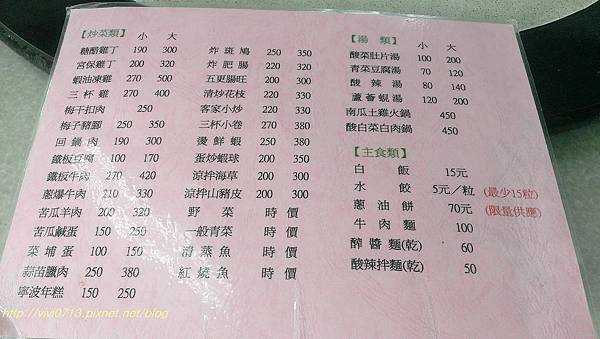 【炒菜類】 小 大
糖醋雞丁 190 300
宮保雞丁 200 320
蝦油凍雞 270 500
三杯雞 270 400
梅干扣肉 250
梅子豬腳 250 350
回鍋肉 190 300
鐵板豆腐 100 170
鐵板牛肉 270 420
蔥爆牛肉 210 330
苦瓜羊肉 200 320
苦瓜鹹蛋 150 250
菜埔蛋 100 150
蒜苗臘肉 250 380
寧波年糕 150 250
炸斑鳩 250 350
炸肥腸 220 320
五更腸旺 200 300
清炒花枝 220 330
客家小炒 220 330
三杯小卷 270 380
燙鮮蝦 250 350
蛋炒蝦球 200 350
涼拌海草 200 300
涼拌山豬皮 200 300
野菜 時價
一般青菜 時價
清蒸魚 時價
紅燒魚 時價
【湯類】 小 大
酸菜肚片湯 100 200
青菜豆腐湯 70 120
酸辣湯 80 140
蘆薈蜆湯 120 200
南瓜土雞火鍋 450
酸白菜白肉鍋 450
【主食類】
白飯 15元
水餃 5元/粒 (最少15粒)
蔥油餅 70元 (限量供應)
牛肉麵 100
醡醬麵(乾) 60
酸辣拌麵(乾) 50
http://vivi0713.pixnet.net/blog